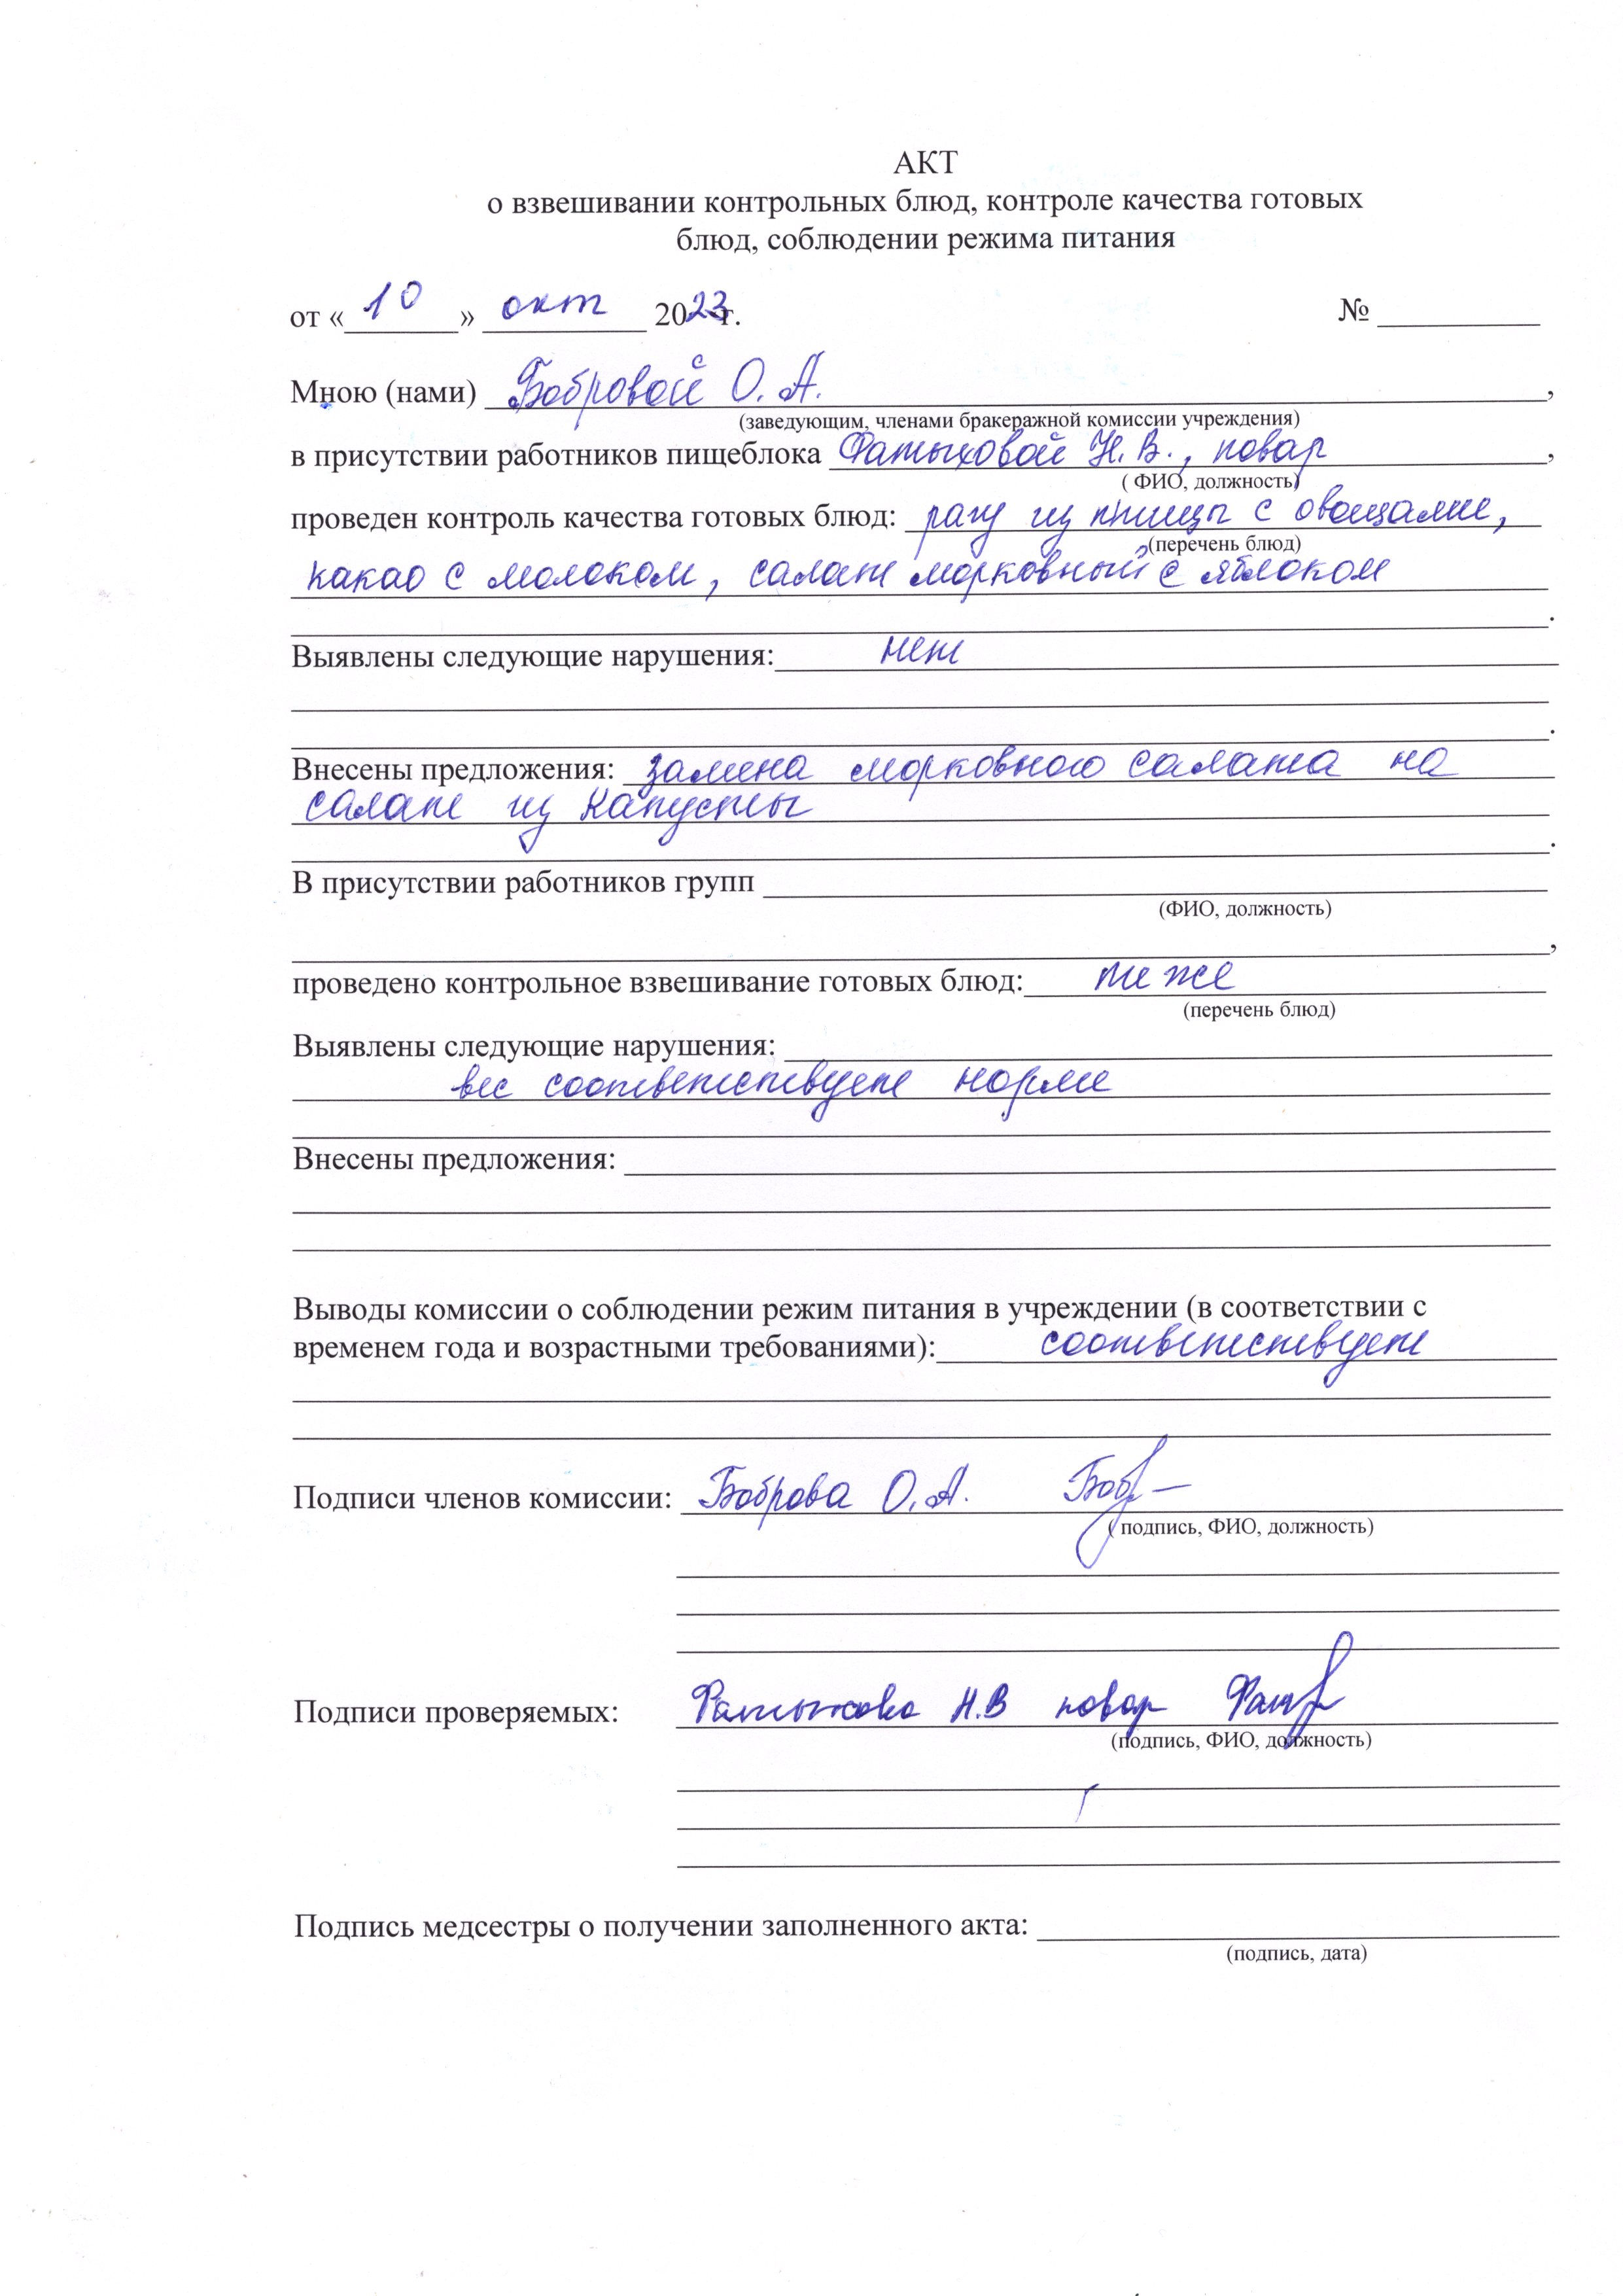 АКТ
о взвешивании контрольных блюд, контроле качества готовых
блюд, соблюдении режима питания
от «10» окт 2023 г. №
Мною (нами) Бобровой О. А.,
(заведующим, членами бракеражной комиссии учреждения)
в присутствии работников пищеблока Фатыховой Н. В., повар,
( ФИО, должность)
проведен контроль качества готовых блюд: рагу из птицы с овощами,
(перечень блюд)
какао с молоком, салат морковный с яблоком
.
Выявлены следующие нарушения: нет
.
Внесены предложения: замена морковного салата на
салат из капусты
.
В присутствии работников групп
(ФИО, должность)
,
проведено контрольное взвешивание готовых блюд: те же
(перечень блюд)
Выявлены следующие нарушения:
вес соответствует норме
Внесены предложения:
Выводы комиссии о соблюдении режим питания в учреждении (в соответствии с
временем года и возрастными требованиями): соответствует
Подписи членов комиссии: Боброва О. А. Боб
( подпись, ФИО, должность)
Подписи проверяемых: Фатыхова Н.В повар Фат
(подпись, ФИО, должность)
Подпись медсестры о получении заполненного акта:
(подпись, дата)